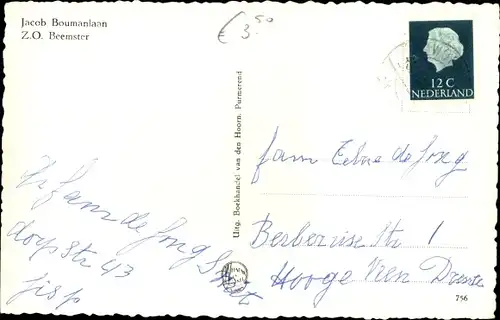 Jacob Boumanlaan
Z.O. Beemster
3.50
12 C
NEDERLAND
Uitg. Boekhandel van den Hoorn. Purmerend
fam de Jong
1
Hooge Veen Drente
fam de Jong
dorpstr 43
Jisp
756